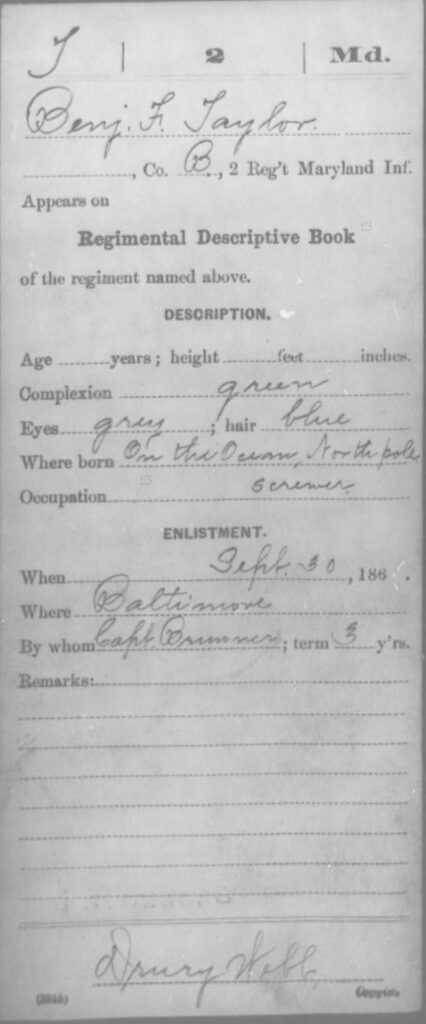 T | 2 | Md.
Benj. F. Taylor.
, Co. B., 2 Reg't Maryland Inf.
Appears on
Regimental Descriptive Book
of the regiment named above.
DESCRIPTION.
Age years; height feet inches.
Complexion green
Eyes grey; hair blue
Where born On the Ocean, North pole
Occupation screwer
ENLISTMENT.
When Sept. 30, 186 .
Where Baltimore
By whom Capt Brunner; term 3 y'rs.
Remarks:
Drury Webb
Copyist.